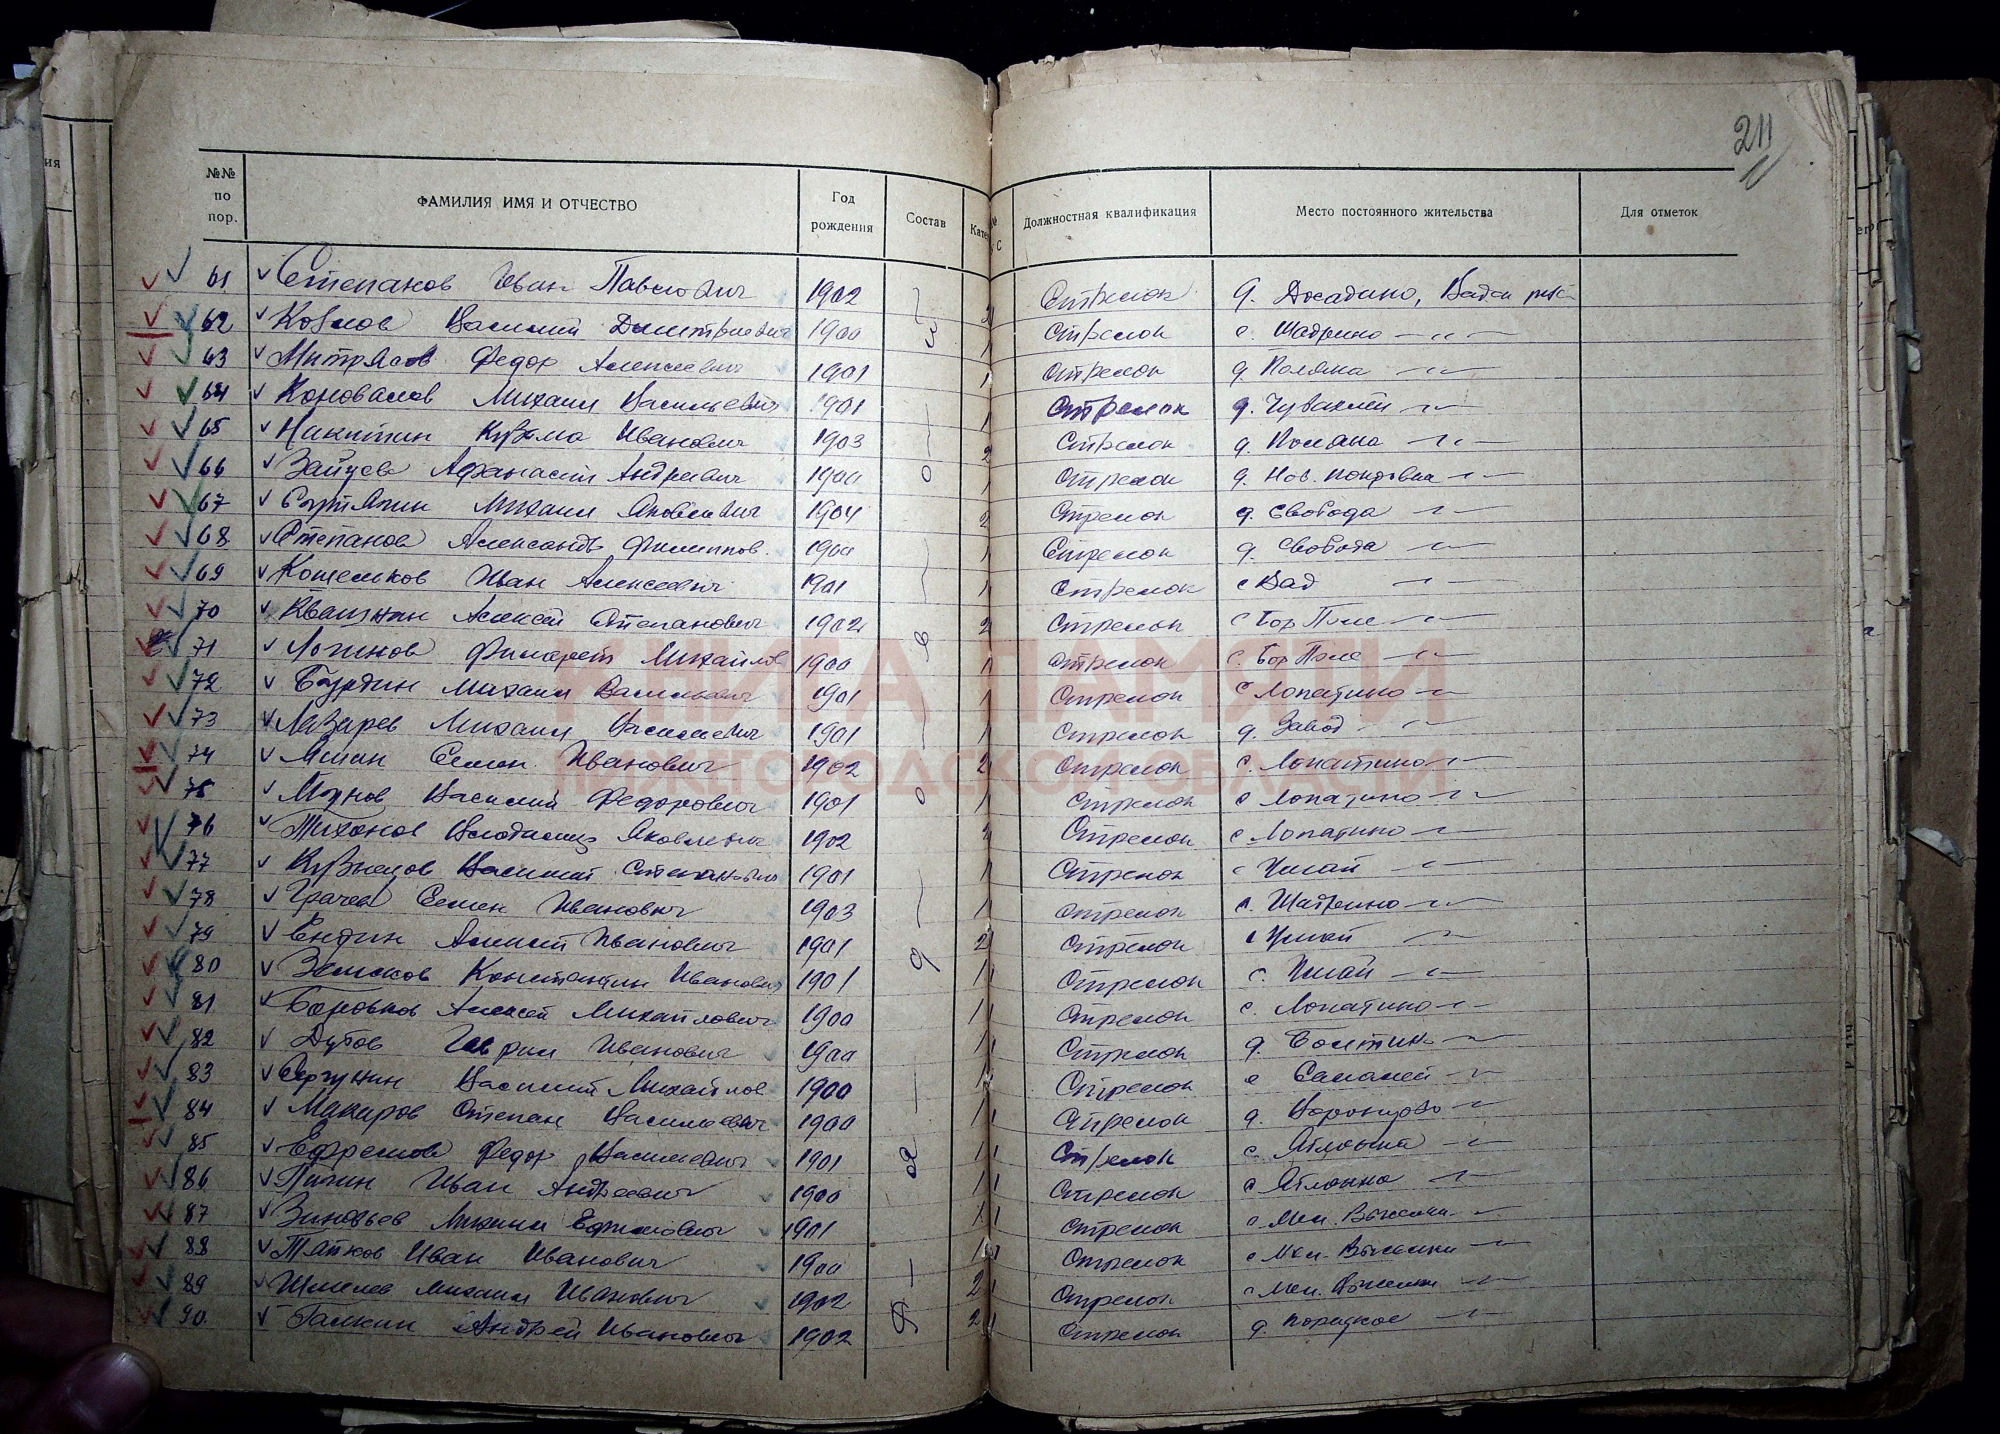 211
№№ по пор. ФАМИЛИЯ ИМЯ И ОТЧЕСТВО Год рождения Состав Кате № С Должностная квалификация Место постоянного жительства Для отметок
61 Степанов Иван Павлович 1902 2 Стрелок д. Досадино, Вадск
62 Козлов Василий Дмитриевич 1900 1 Стрелок с. Шадрино —〃—
63 Митрясов Федор Алексеевич 1901 1 Стрелок д. Поляна —〃—
64 Коновалов Михаил Васильевич 1901 1 Стрелок д. —〃—
65 Никитин Кузьма Иванович 1903 2 Стрелок д. Поляна —〃—
66 Зайцев Афанасий Андреевич 1900 1 Стрелок д. Нов. —〃—
67 Михаил Яковлевич 1904 2 Стрелок д. Свобода —〃—
68 Степанов Александр Филиппов. 1900 1 Стрелок д. Свобода —〃—
69 Кошельков Иван Алексеевич 1901 1 Стрелок с Вад —〃—
70 Квашнин Алексей Степанович 1902 2 Стрелок с Бор Поле —〃—
71 Логинов Филарет Михайлов 1900 1 Стрелок с. Бор Поле —〃—
72 Бурдин Михаил Васильевич 1901 1 Стрелок с Лопатино —〃—
73 Лазарев Михаил Васильевич 1901 1 Стрелок д. Завод —〃—
74 Семен Иванович 1902 2 Стрелок с. Лопатино —〃—
75 Василий Федорович 1901 1 Стрелок с Лопатино —〃—
76 Тихонов Владимир Яковлевич 1902 2 Стрелок с Лопатино —〃—
77 Кузнецов Василий Степанович 1901 1 Стрелок с Умай —〃—
78 Грачев Семен Иванович 1903 1 Стрелок с. Шадрино —〃—
79 Ендин Алексей Иванович 1901 2 Стрелок с Умай —〃—
80 Земсков Константин Иванович 1901 1 Стрелок с. Умай —〃—
81 Боровков Алексей Михайлович 1900 1 Стрелок с. Лопатино —〃—
82 Дутов Иванович 1900 1 Стрелок д. —〃—
83 Сергунин Василий Михайлов 1900 1 Стрелок с Салалей —〃—
84 Макаров Степан Васильевич 1900 1 Стрелок д. Воронцово —〃—
85 Ефремов Федор Васильевич 1901 1 Стрелок с. Яблонка —〃—
86 Пигин Иван Андреевич 1900 1 Стрелок с Яблонка —〃—
87 Зиновьев Михаил Ефимович 1901 1 Стрелок с Мел. Выселки —〃—
88 Тяпков Иван Иванович 1900 1 Стрелок с Мел. Выселки —〃—
89 Шмелев Михаил Иванович 1902 2 Стрелок с Мел. Выселки —〃—
90. Галкин Андрей Иванович 1902 2 Стрелок д. —〃—
КНИГА ПАМЯТИ
НИЖЕГОРОДСКОЙ ОБЛАСТИ